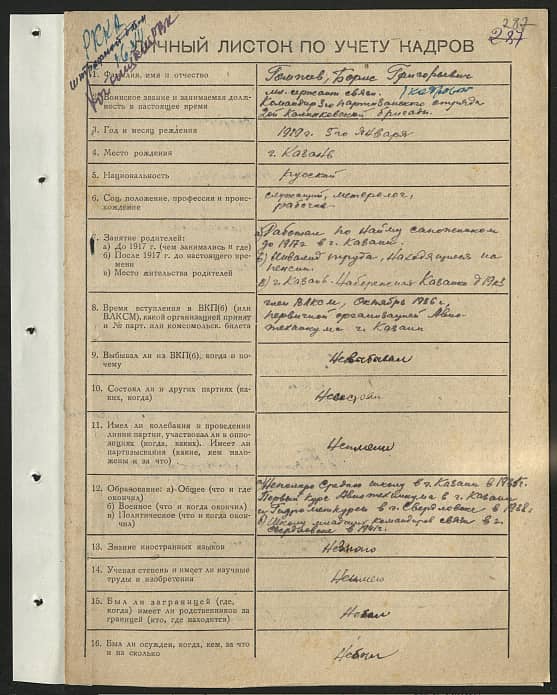 287
287
РККА
ЛИЧНЫЙ ЛИСТОК ПО УЧЕТУ КАДРОВ
1. Фамилия, имя и отчество
Борис Григорьевич
2. Воинское звание и занимаемая долж-
ность в настоящее время
мл. сержант связи. (кадровый
Командир 3го партизанского отряда
2ой бригады.
3. Год и месяц рождения
1919г. 5го Января
4. Место рождения
г. Казань
5. Национальность
русский
6. Соц. положение, профессия и проис-
хождение
служащий, метеролог,
рабочий.
7. Занятие родителей:
а) До 1917 г. (чем занимались и где)
б) После 1917 г. до настоящего вре-
мени
в) Место жительства родителей
а) Работал по найму сапожником
до 1917 г. в г. Казани.
б) Инвалид труда, находящиеся на
пенсии.
в) г. Казань. Набережная Казанка д
8. Время вступления в ВКП(б) (или
ВЛКСМ), какой организацией принят
и № парт. или комсомольск. билета
член ВЛКСМ, Октябрь 1936г,
первичной организацией Авио-
техникума г. Казани
9. Выбывал ли из ВКП(б), когда и по-
чему
Невыбывал
10. Состоял ли в других партиях (ка-
ких, когда)
11. Имел ли колебания в проведении
линии партии, участвовал ли в оппо-
зициях (когда, каких). Имеет ли
партвзыскания (какие, кем нало-
жены и за что)
12. Образование: а) Общее (что и где
окончил)
б) Военное (что и когда окончил)
в) Политическое (что и когда окон-
чил)
а) Неполную Среднюю школу в г. Казани в
Первый курс Авиотехникума в г. Казани
и в г. Свердловске в 1938г.
б) Школу младших командиров связи в г.
Свердловске в
13. Знание иностранных языков
14. Ученая степень и имеет ли научные
труды и изобретения
Неимею
15. Был ли заграницей (где,
когда) имеет ли родственников за
границей (кто, где находится)
Небыл
16. Был ли осужден, когда, кем, за что
и на сколько
Небыл